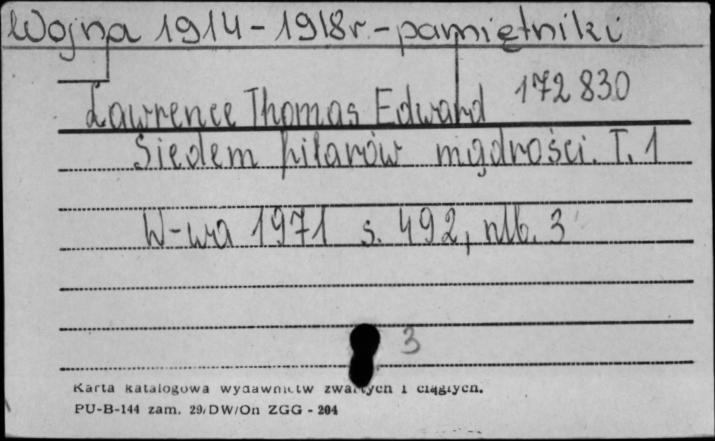 Wojna 1914-1918r.-pamiętniki
172 830
Lawrence Thomas Edward
Siedem filarów mądrości. T. 1
W-wa 1971 s. 492, nlb. 3
3
Karta katalogowa wydawnictw zwartych i ciągłych.
PU-B-144 zam. 29/DW/On ZGG - 204